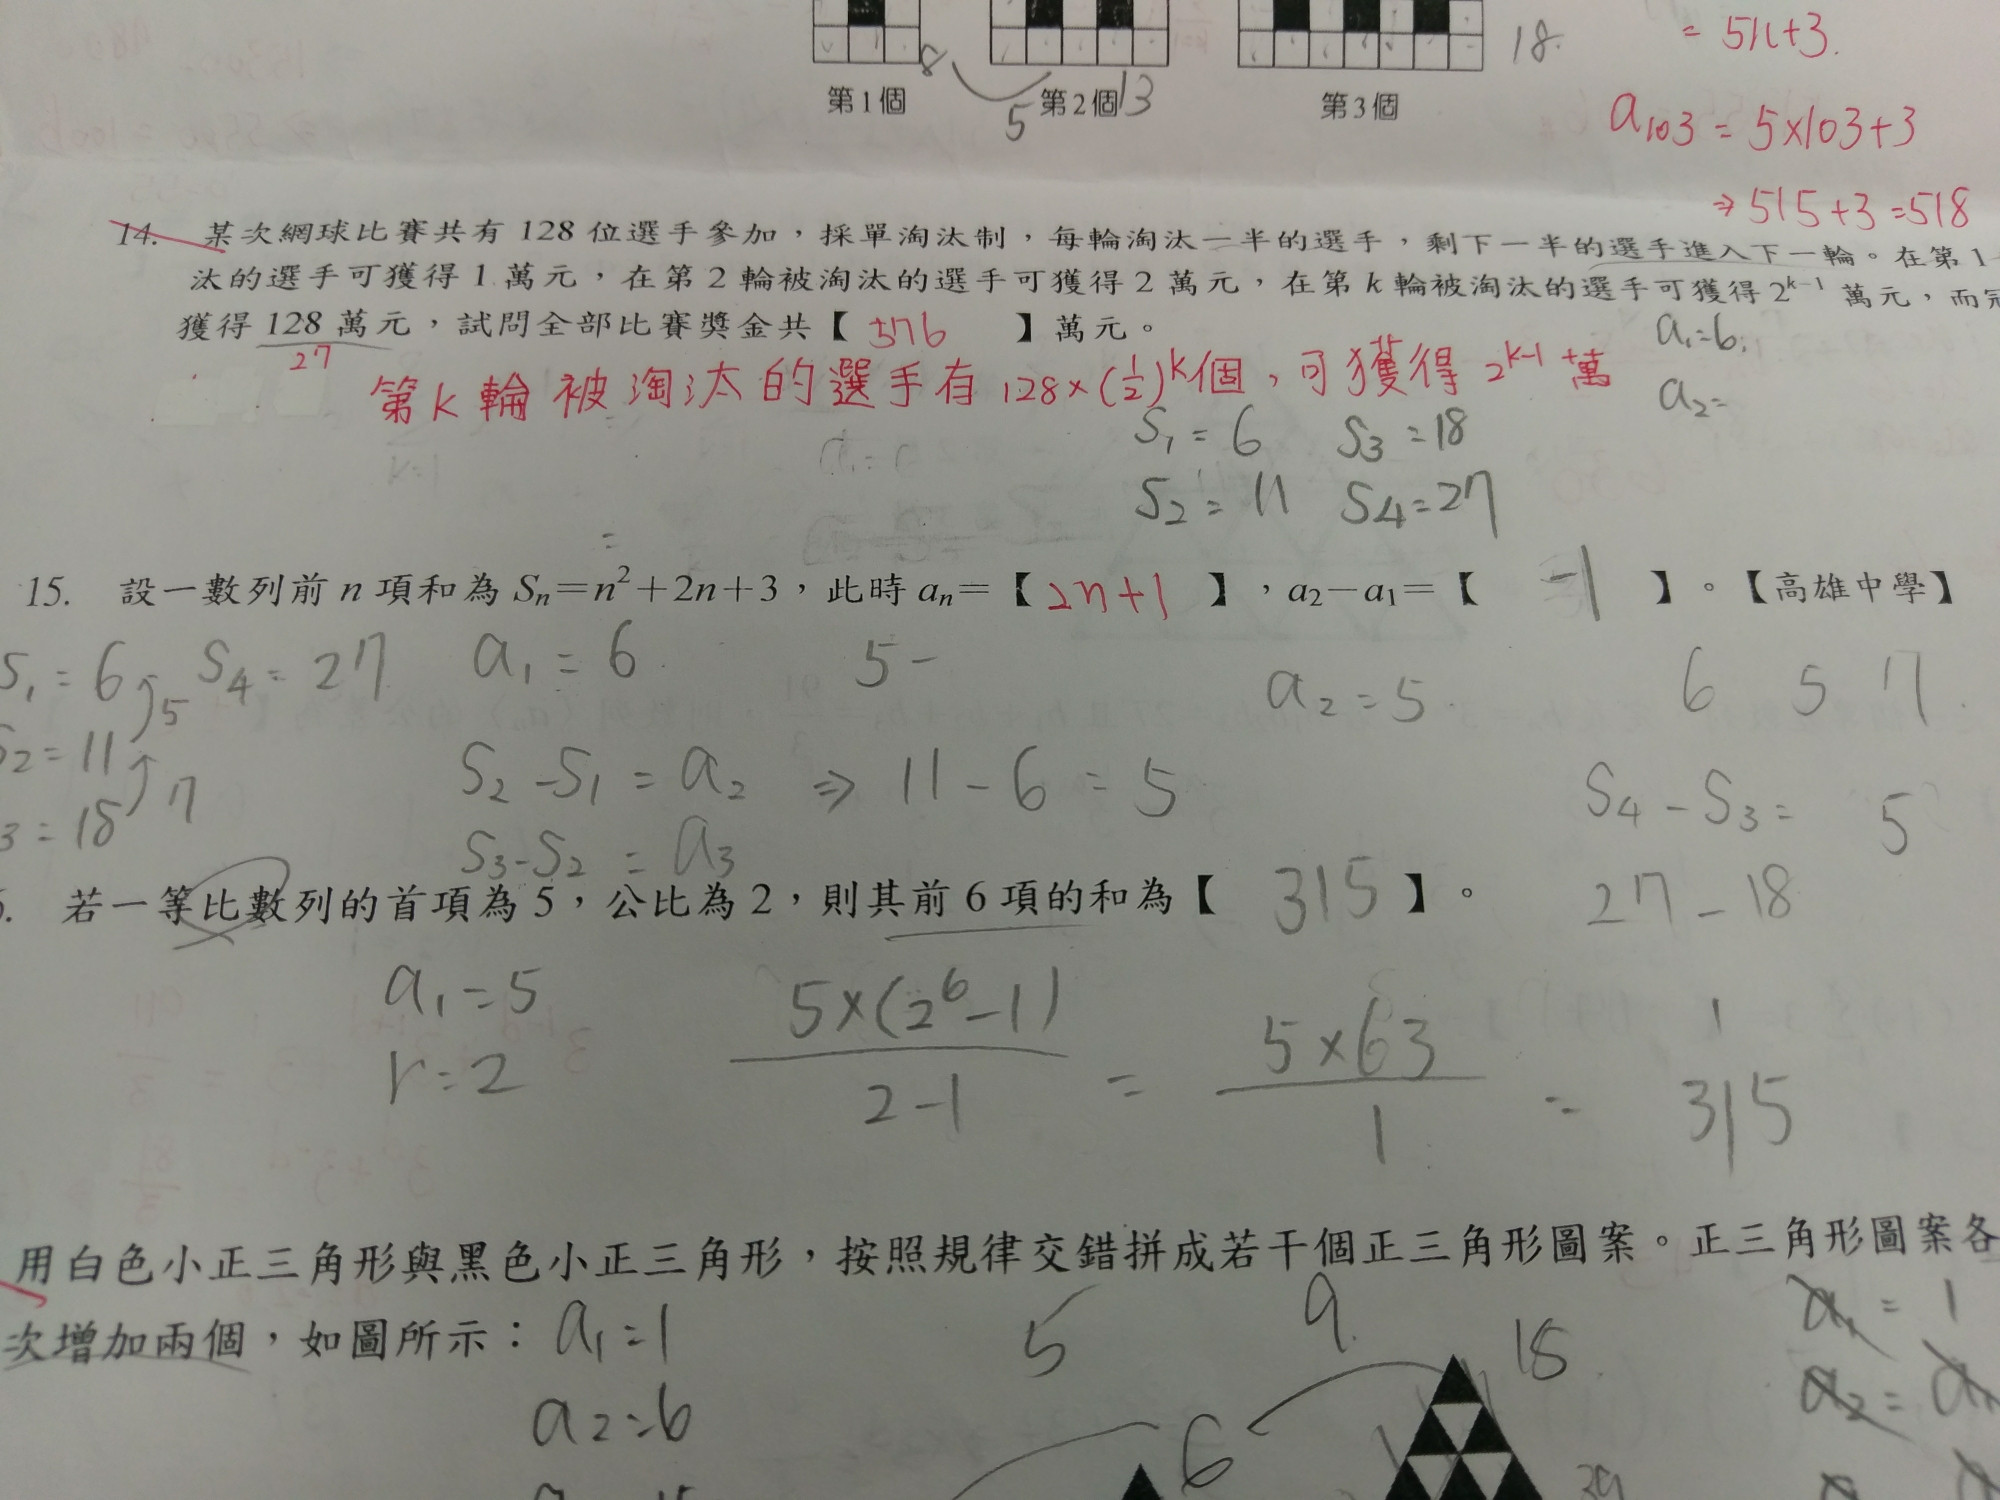 8
18.
= 5n+3.
第1個
5
第2個
13
第3個
a103 = 5×103+3
⇒ 515+3=518
14. 某次網球比賽共有 128 位選手參加，採單淘汰制，每輪淘汰一半的選手，剩下一半的選手進入下一輪。在第 1
汰的選手可獲得 1 萬元，在第 2 輪被淘汰的選手可獲得 2 萬元，在第 k 輪被淘汰的選手可獲得 2^{k-1} 萬元，而
獲得 128 萬元，試問全部比賽獎金共【 576 】萬元。
2^7
a1=6,
第 k 輪 被 淘 汰 的 選 手 有 128×(1/2)^k 個，可 獲 得 2^{k-1} 萬
a2=
S1 = 6 S3 = 18
S2 = 11 S4 = 27
=
15. 設一數列前 n 項和為 Sn=n²+2n+3，此時 an=【 2n+1 】，a2−a1=【 -1 】。【高雄中學】
S1 = 6 5 S4 = 27 a1 = 6 5 - a2 = 5. 6 5 7.
S2 = 11 7 S2 - S1 = a2 ⇒ 11 - 6 = 5 S4 - S3 = 5
3 = 18 S3 - S2 = a3
若一等比數列的首項為 5，公比為 2，則其前 6 項的和為【 315 】。 27 - 18
a1 = 5 5×(2^6-1)/(2-1) = 5×63/1 = 315
r = 2
用白色小正三角形與黑色小正三角形，按照規律交錯拼成若干個正三角形圖案。正三角形圖案各
次增加兩個，如圖所示： a1=1 5 9. 15 a1 = 1
a2=6 6 a2 = a1